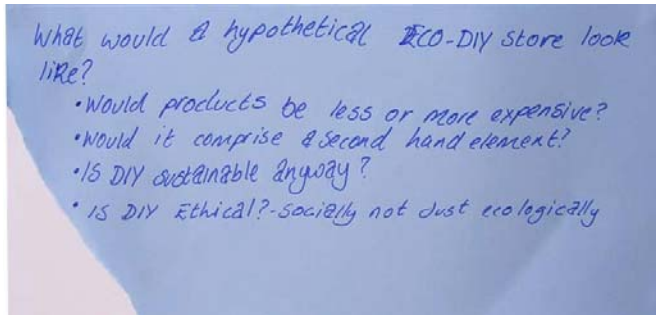 What would a hypothetical ECO-DIY store look
like?
•Would products be less or more expensive?
•Would it comprise a second hand element?
•IS DIY sustainable anyway?
• IS DIY Ethical?-Socially not dust ecologically